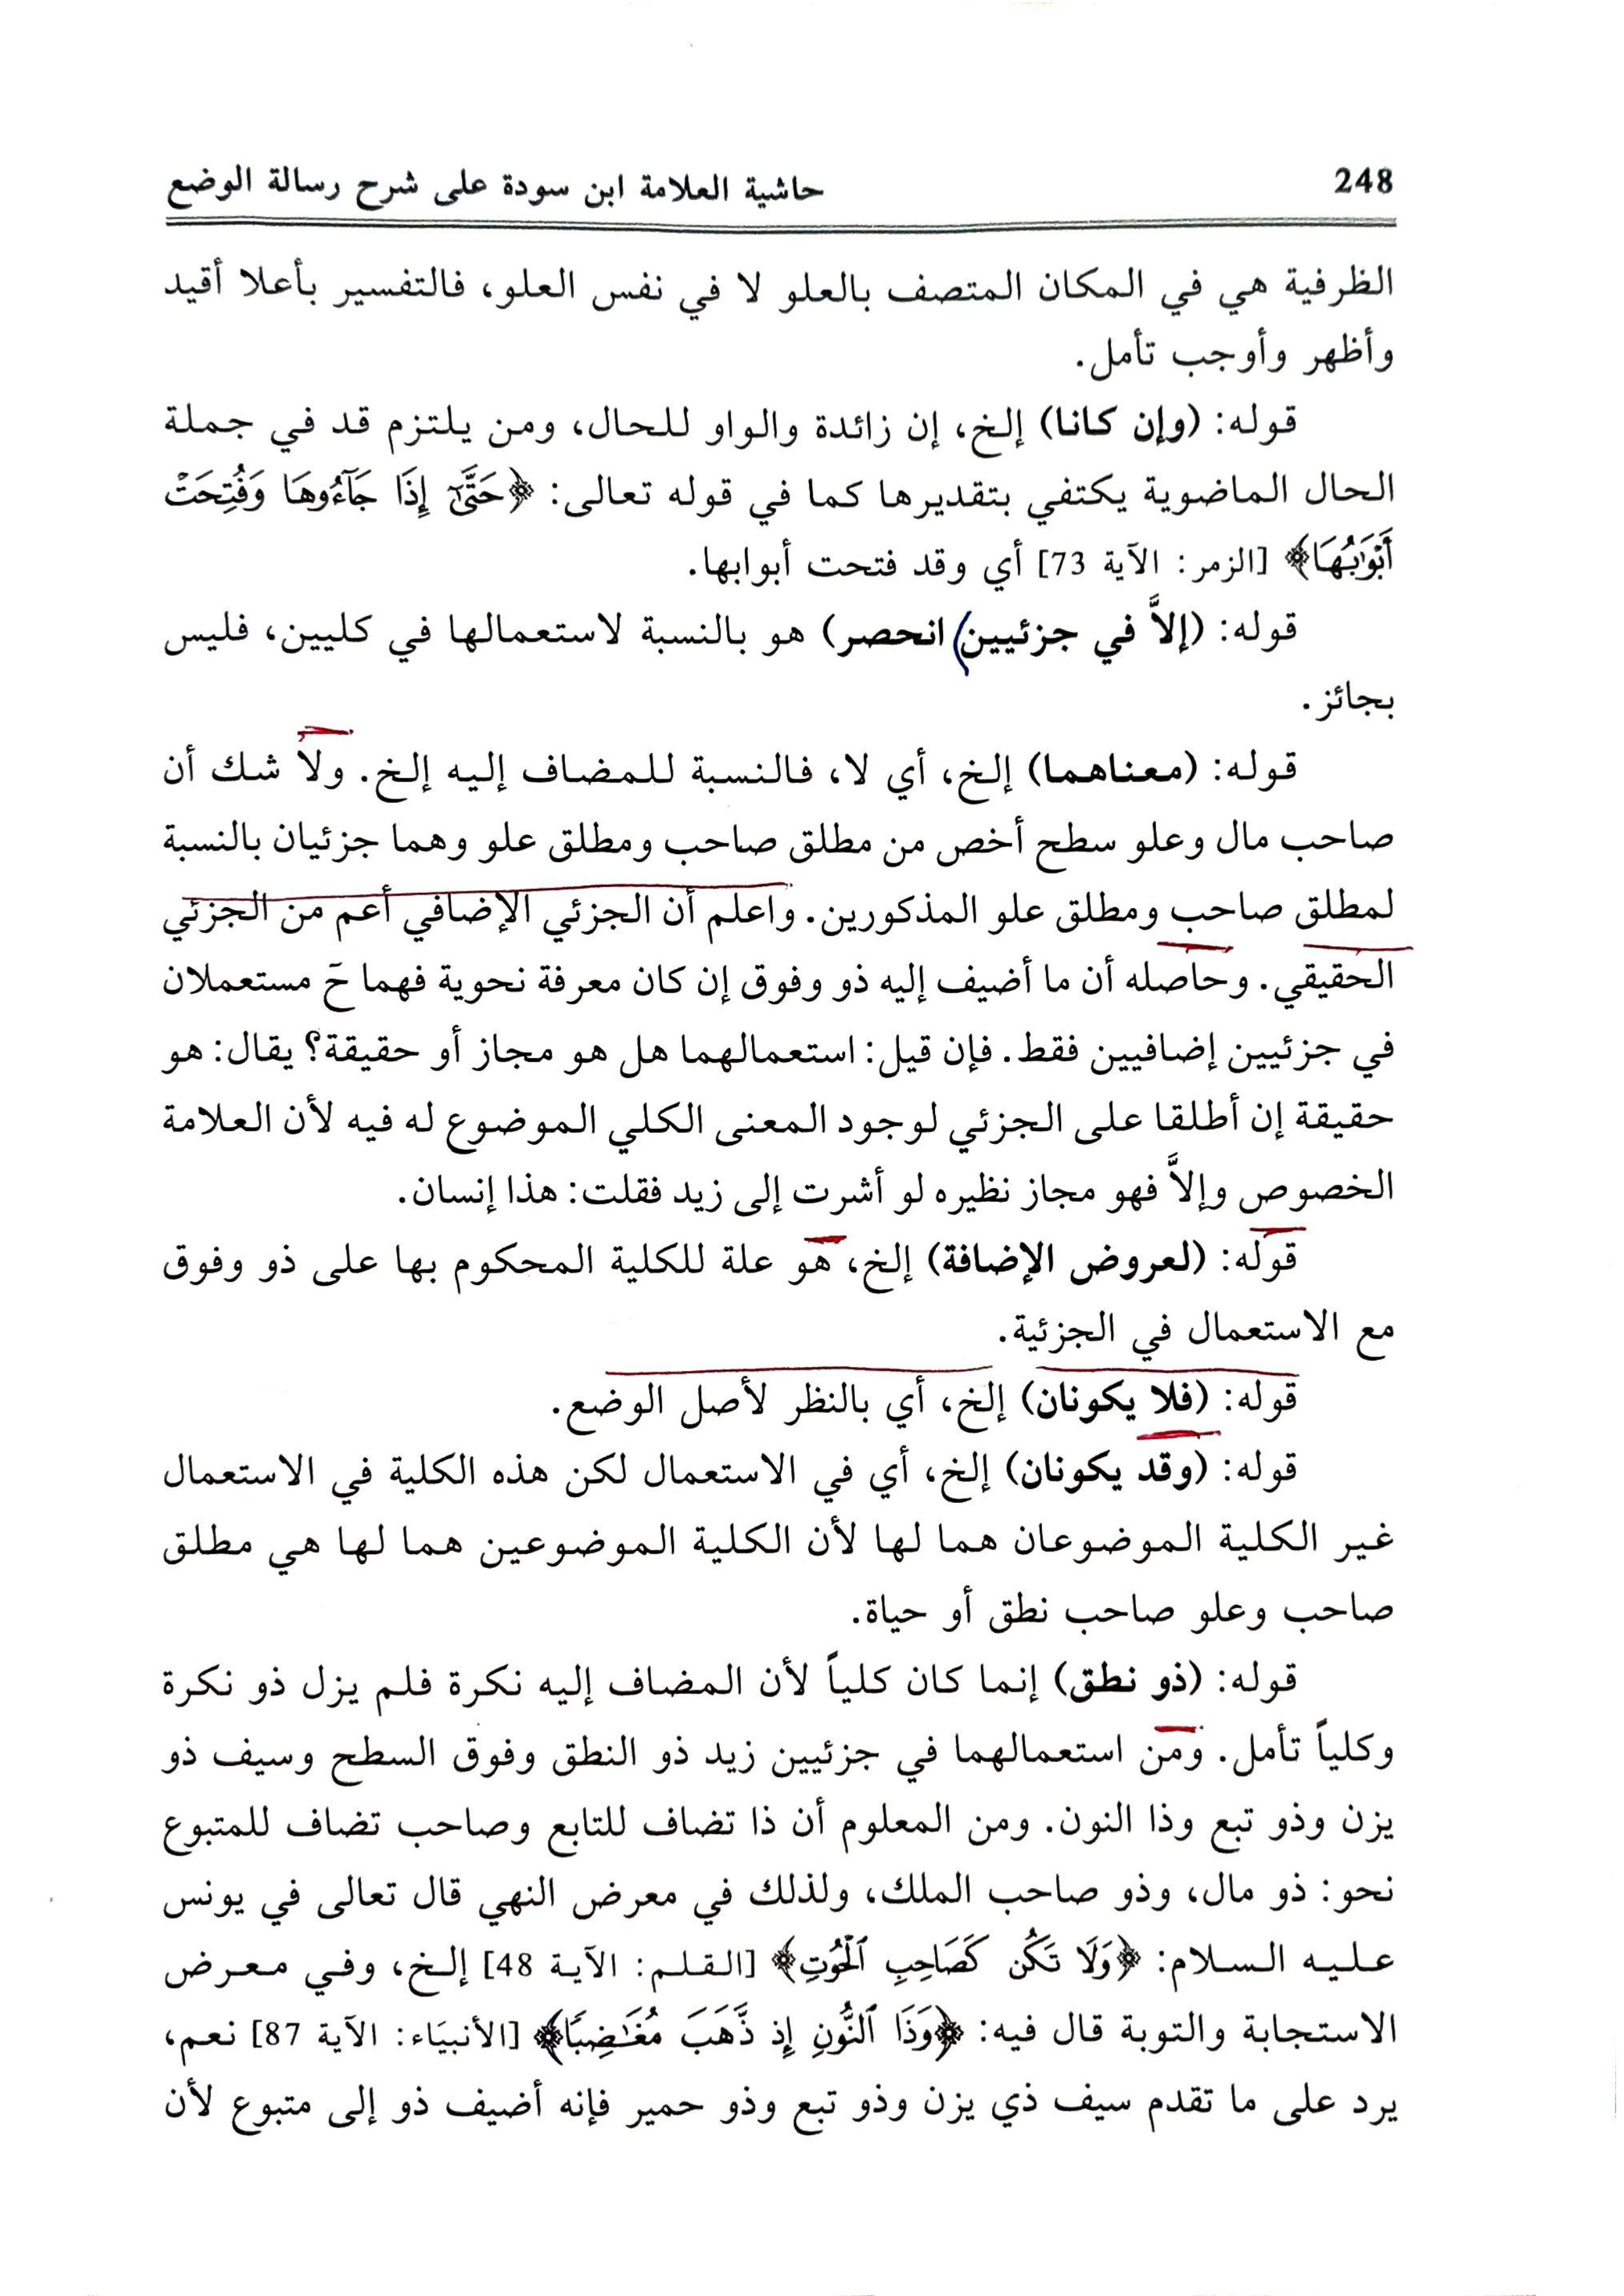 248
حاشية العلامة ابن سودة على شرح رسالة الوضع
الظرفية هي في المكان المتصف بالعلو لا في نفس العلو، فالتفسير بأعلا أقيد
وأظهر وأوجب تأمل.
قوله: (وإن كانا) إلخ، إن زائدة والواو للحال، ومن يلتزم قد في جملة
الحال الماضوية يكتفي بتقديرها كما في قوله تعالى: ﴿حَتَّىٰٓ إِذَا جَآءُوهَا وَفُتِحَتْ
أَبْوَٰبُهَا﴾ [الزمر: الآية 73] أي وقد فتحت أبوابها.
قوله: (إلاَّ في جزئيين) انحصر) هو بالنسبة لاستعمالها في كليين، فليس
بجائز.
قوله: (معناهما) إلخ، أي لا، فالنسبة للمضاف إليه إلخ. ولا شك أن
صاحب مال وعلو سطح أخص من مطلق صاحب ومطلق علو وهما جزئيان بالنسبة
لمطلق صاحب ومطلق علو المذكورين. واعلم أن الجزئي الإضافي أعم من الجزئي
الحقيقي. وحاصله أن ما أضيف إليه ذو وفوق إن كان معرفة نحوية فهما حَ مستعملان
في جزئيين إضافيين فقط. فإن قيل: استعمالهما هل هو مجاز أو حقيقة؟ يقال: هو
حقيقة إن أطلقا على الجزئي لوجود المعنى الكلي الموضوع له فيه لأن العلامة
الخصوص وإلاَّ فهو مجاز نظيره لو أشرت إلى زيد فقلت: هذا إنسان.
قوله: (لعروض الإضافة) إلخ، هو علة للكلية المحكوم بها على ذو وفوق
مع الاستعمال في الجزئية.
قوله: (فلا يكونان) إلخ، أي بالنظر لأصل الوضع.
قوله: (وقد يكونان) إلخ، أي في الاستعمال لكن هذه الكلية في الاستعمال
غير الكلية الموضوعان هما لها لأن الكلية الموضوعين هما لها هي مطلق
صاحب وعلو صاحب نطق أو حياة.
قوله: (ذو نطق) إنما كان كلياً لأن المضاف إليه نكرة فلم يزل ذو نكرة
وكلياً تأمل. ومن استعمالهما في جزئيين زيد ذو النطق وفوق السطح وسيف ذو
يزن وذو تبع وذا النون. ومن المعلوم أن ذا تضاف للتابع وصاحب تضاف للمتبوع
نحو: ذو مال، وذو صاحب الملك، ولذلك في معرض النهي قال تعالى في يونس
عليه السلام: ﴿وَلَا تَكُن كَصَاحِبِ ٱلْحُوتِ﴾ [القلم: الآية 48] إلخ، وفي معرض
الاستجابة والتوبة قال فيه: ﴿وَذَا ٱلنُّونِ إِذ ذَّهَبَ مُغَٰضِبًا﴾ [الأنبيَاء: الآية 87] نعم،
يرد على ما تقدم سيف ذي يزن وذو تبع وذو حمير فإنه أضيف ذو إلى متبوع لأن